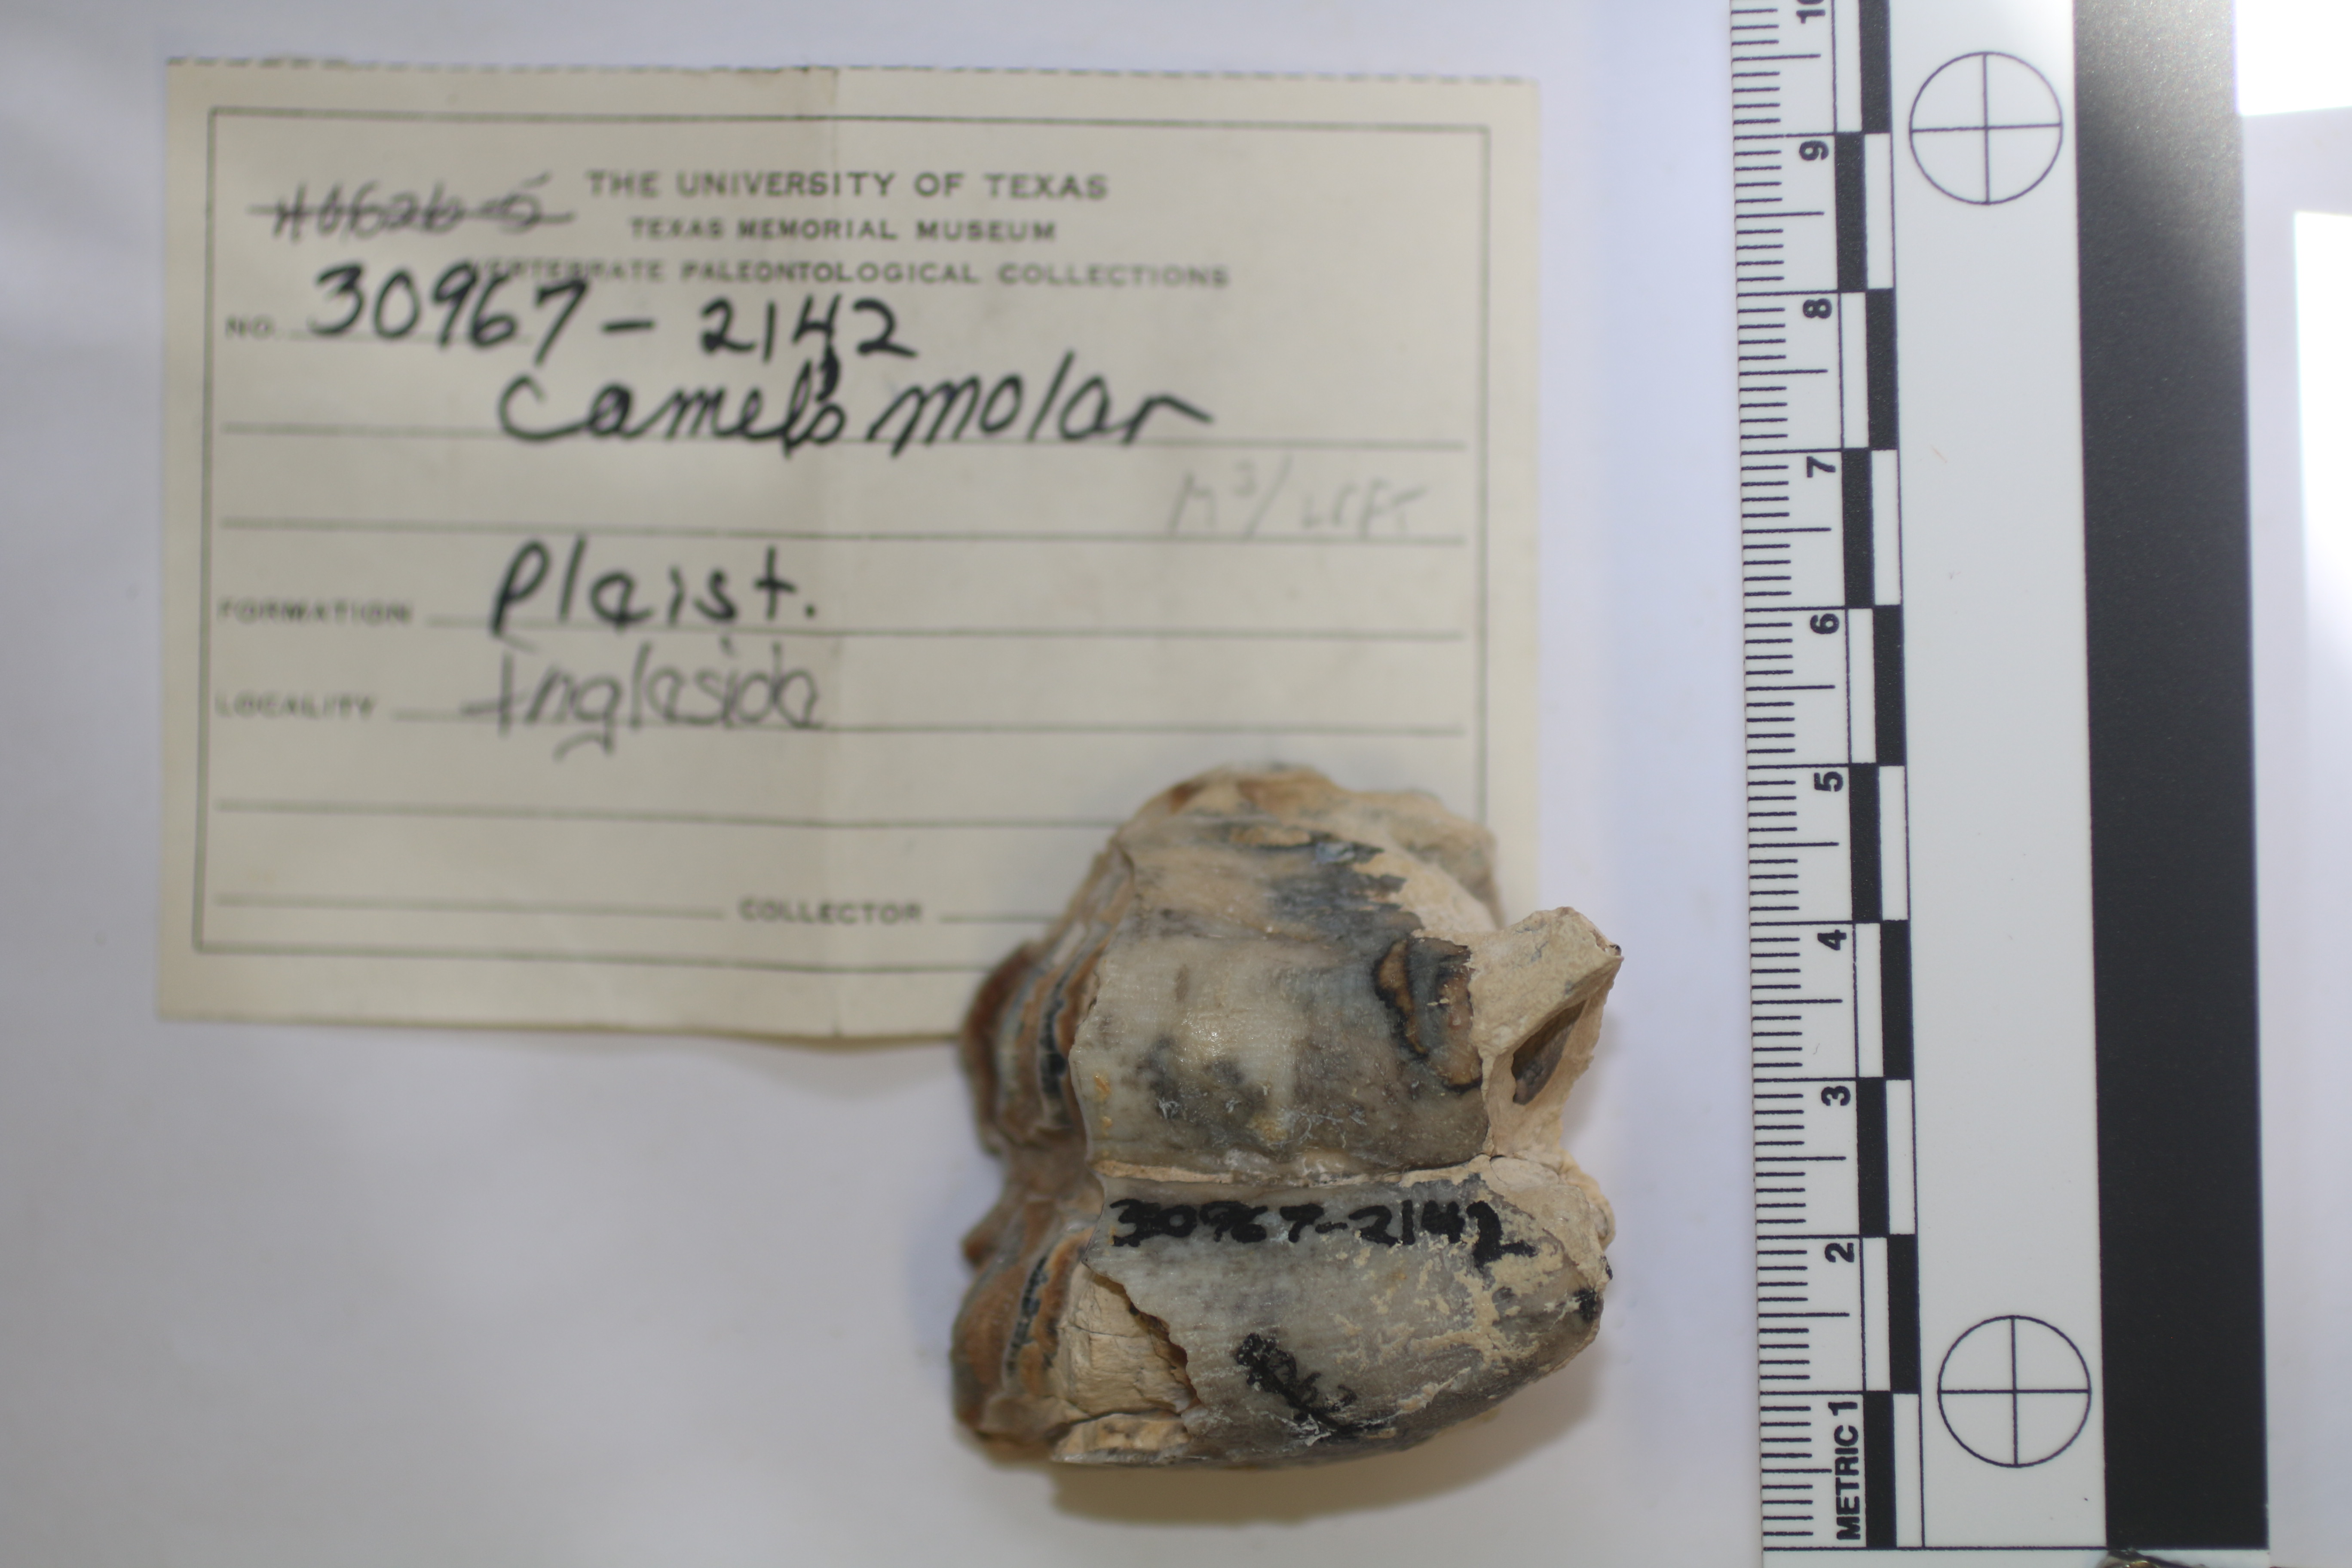 THE UNIVERSITY OF TEXAS
TEXAS MEMORIAL MUSEUM
VERTEBRATE PALEONTOLOGICAL COLLECTIONS
NO. 30967-2142
Camel's molar
M3/ LEFT
FORMATION Pleist.
LOCALITY Ingleside
COLLECTOR
30967-2142
10
9
8
7
6
5
4
3
2
METRIC 1